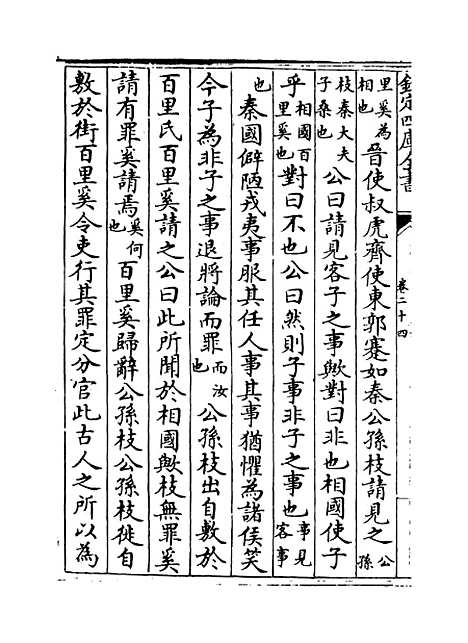 欽定四庫全書
卷二十四
里奚為相也晉使叔虎齊使東郭蹇如秦公孫枝請見之公孫
枝秦大夫子桑也公曰請見客子之事歟對曰非也相國使子
乎相國百里奚也對曰不也公曰然則子事非子之事也事見客事
也秦國僻陋戎夷事服其任人事其事猶懼為諸侯笑
今子為非子之事退將論而罪而汝也公孫枝出自敷於
百里氏百里奚請之公曰此所聞於相國歟枝無罪奚
請有罪奚請焉奚何也百里奚歸辭公孫枝公孫枝徙自
敷於街百里奚令吏行其罪定分官此古人之所以為